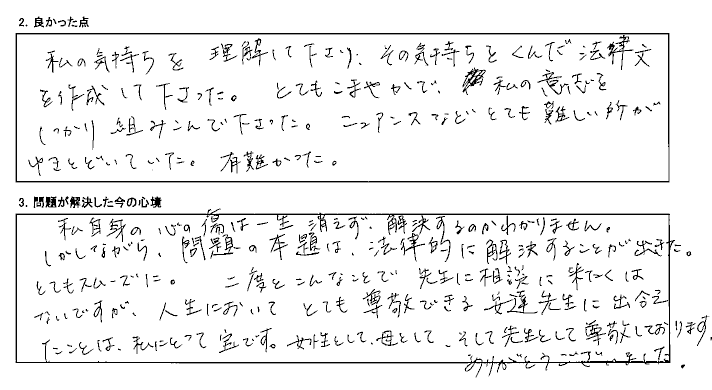 2. 良かった点
私の気持ちを 理解して下さり、その気持ちをくんだ法律文
を作成して下さった。 とてもこまやかで、 私の意志を
しっかり 組みこんで下さった。 ニュアンスなどとても難しい所が
ゆきとどいていた。 有難かった。
3. 問題が解決した今の心境
私自身の心の傷は一生 消えず、解決するのかわかりません。
しかしながら、問題の本題は、法律的に解決することが出きた。
とてもスムーズに。 二度とこんなことで 先生に相談に来たくは
ないですが、人生において とても 尊敬できる 安達先生に出会え
たことは、私にとって 宝です。女性として、母として、そして先生として尊敬しております。
ありがとうございました。